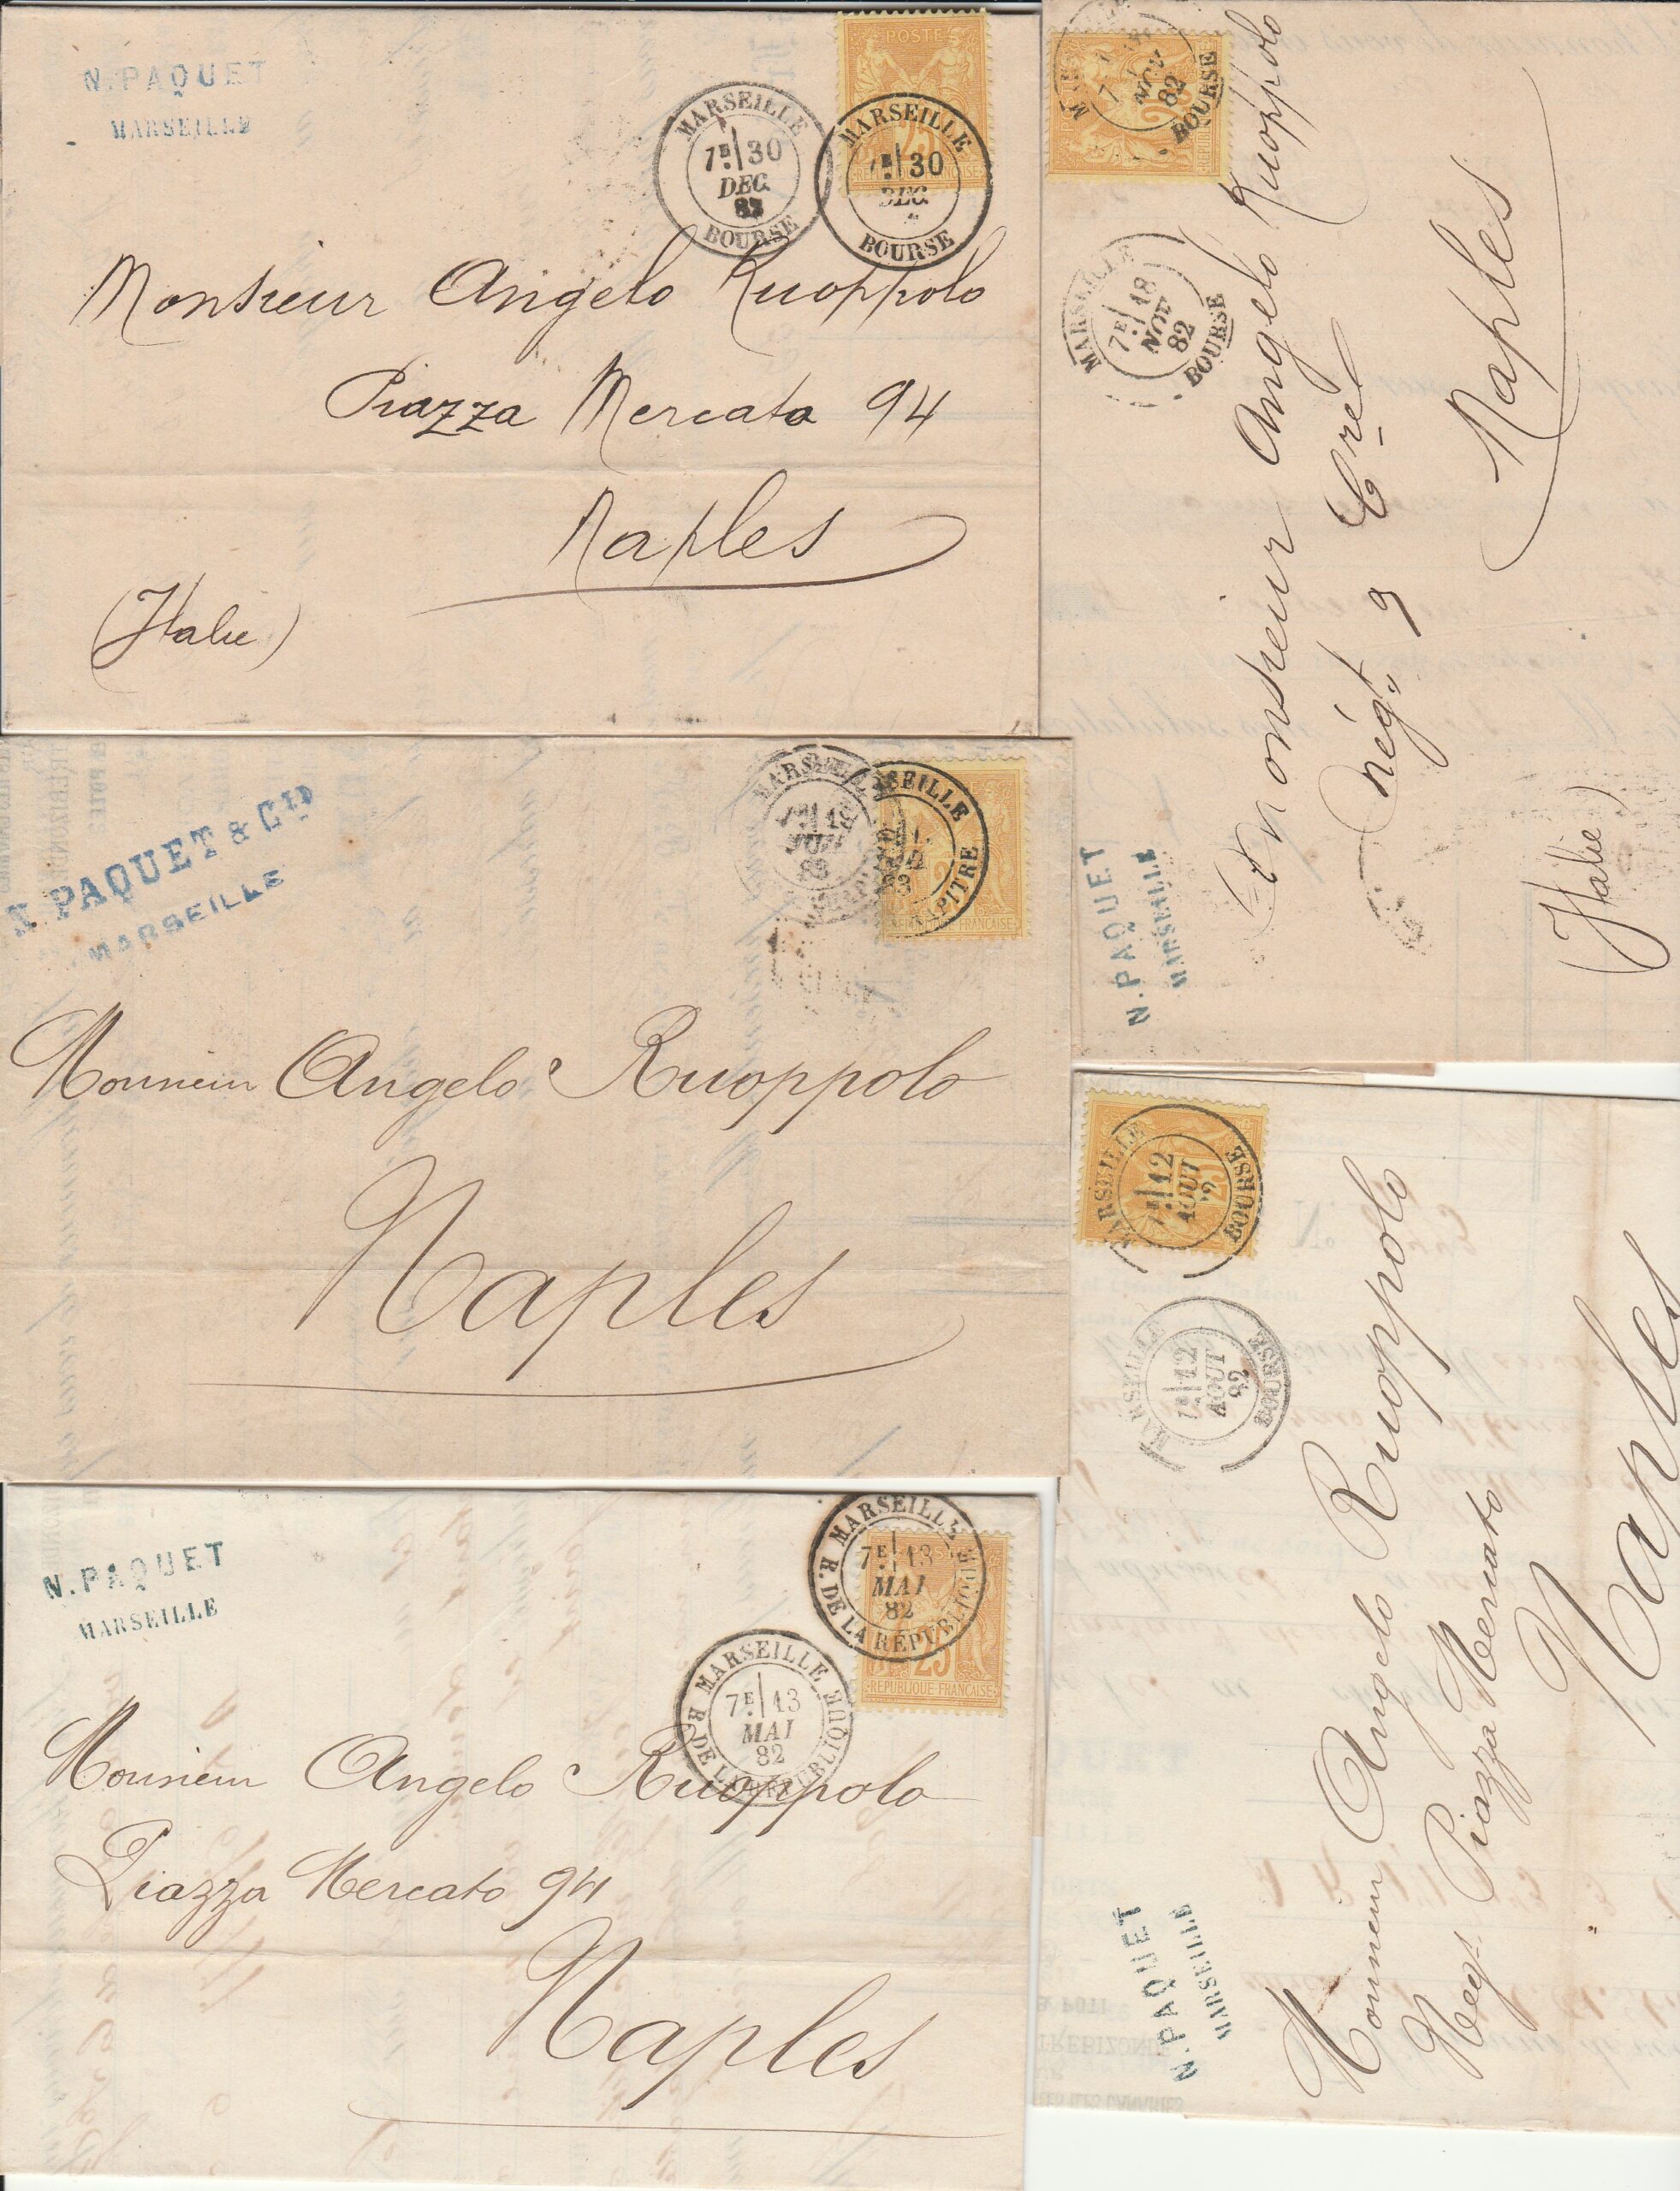 N. PAQUET
MARSEILLE
POSTE
25
REPUBLIQUE FRANÇAISE
MARSEILLE
7E 30
DEC.
BOURSE
MARSEILLE
7E 30
DEC.
BOURSE
Monsieur Angelo Ruoppolo
Piazza Mercato 94
Naples
(Italie)
N. PAQUET & CIE
MARSEILLE
MARSEILLE
Monsieur Angelo Ruoppolo
Naples
N. PAQUET
MARSEILLE
MARSEILLE
7E 13
MAI
82
R. DE LA RÉPUBLIQUE
25
REPUBLIQUE FRANÇAISE
MARSEILLE
7E 13
MAI
82
R. DE LA RÉPUBLIQUE
Monsieur Angelo Ruoppolo
Piazza Mercato 94
Naples
7E 18
NOV
82
BOURSE
MARSEILLE
7E 18
NOV
82
BOURSE
N. PAQUET
MARSEILLE
Monsieur Angelo Ruoppolo
négt
Naples
(Italie)
MARSEILLE
7E 12
AOUT
BOURSE
MARSEILLE
7E 12
AOUT
82
BOURSE
N. PAQUET
MARSEILLE
Monsieur Angelo Ruoppolo
Negt Piazza Mercato
Naples